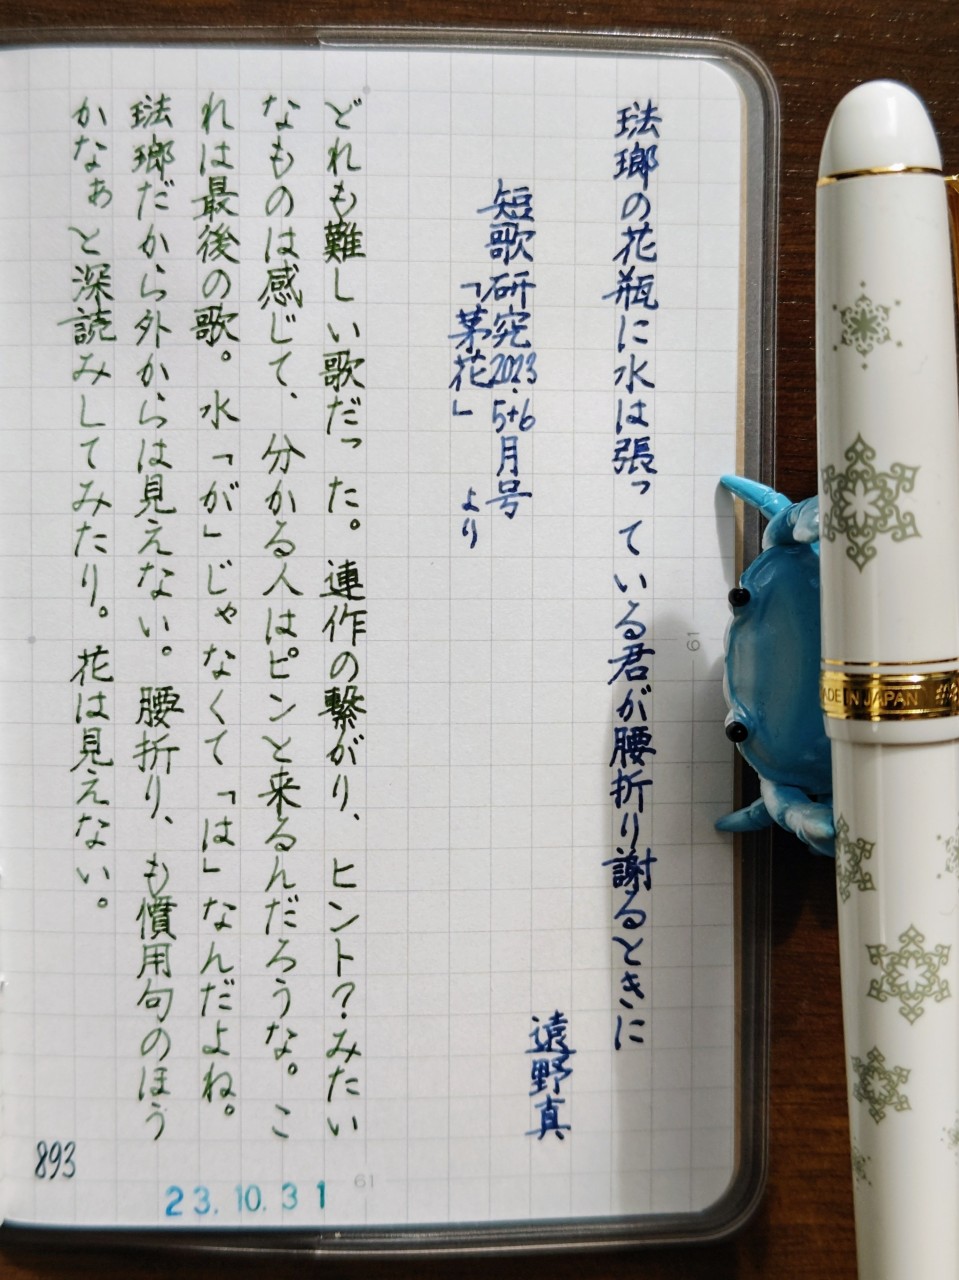 琺瑯の花瓶に水は張っている君が腰折り謝るときに
遠野真
短歌研究2023.5+6月号
「茅花」 より
どれも難しい歌だった。連作の繋がり、ヒント?みたい
なものは感じて、分かる人はピンと来るんだろうな。こ
れは最後の歌。水「が」じゃなくて「は」なんだよね。
琺瑯だから外からは見えない。腰折り、も慣用句のほう
かなぁと深読みしてみたり。花は見えない。
893
23.10.31
61
61
MADE IN JAPAN